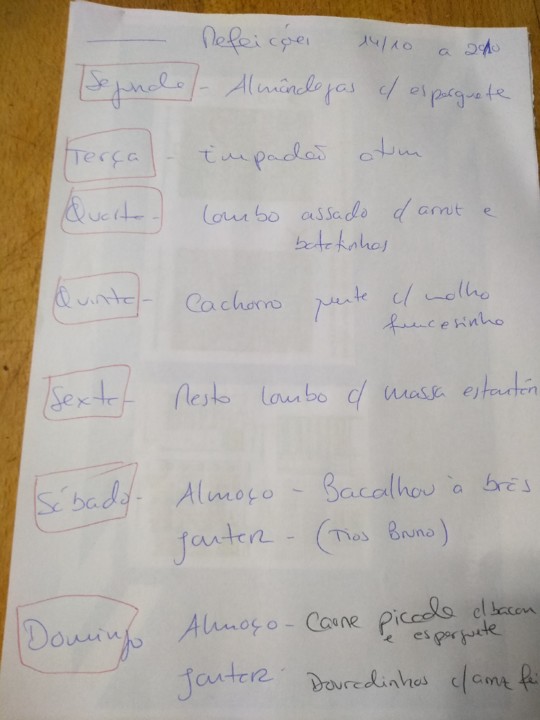 Refeições 14/10 a 20/10
Segunda - Almôndegas c/ esparguete
Terça - Empadão atum
Quarta - Lombo assado c/ arroz e
batatinhas
Quinta - Cachorro quente c/ molho
francesinha
Sexta - Resto lombo c/ massa
Sábado - Almoço - Bacalhau à brás
Jantar - (Tios Bruno)
Domingo Almoço - Carne picada c/ bacon
e esparguete
Jantar - Douradinhos c/ arroz